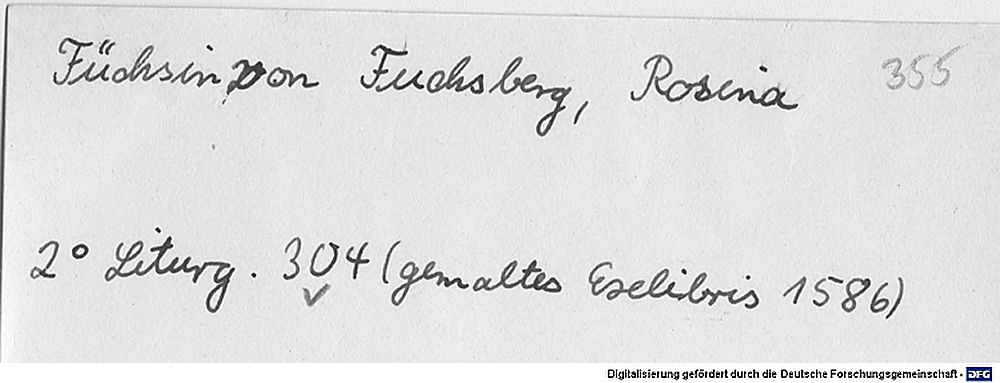 Füchsin von Fuchsberg, Rosina 355
2° Liturg. 304 (gemaltes Exlibris 1586)
Digitalisierung gefördert durch die Deutsche Forschungsgemeinschaft - DFG